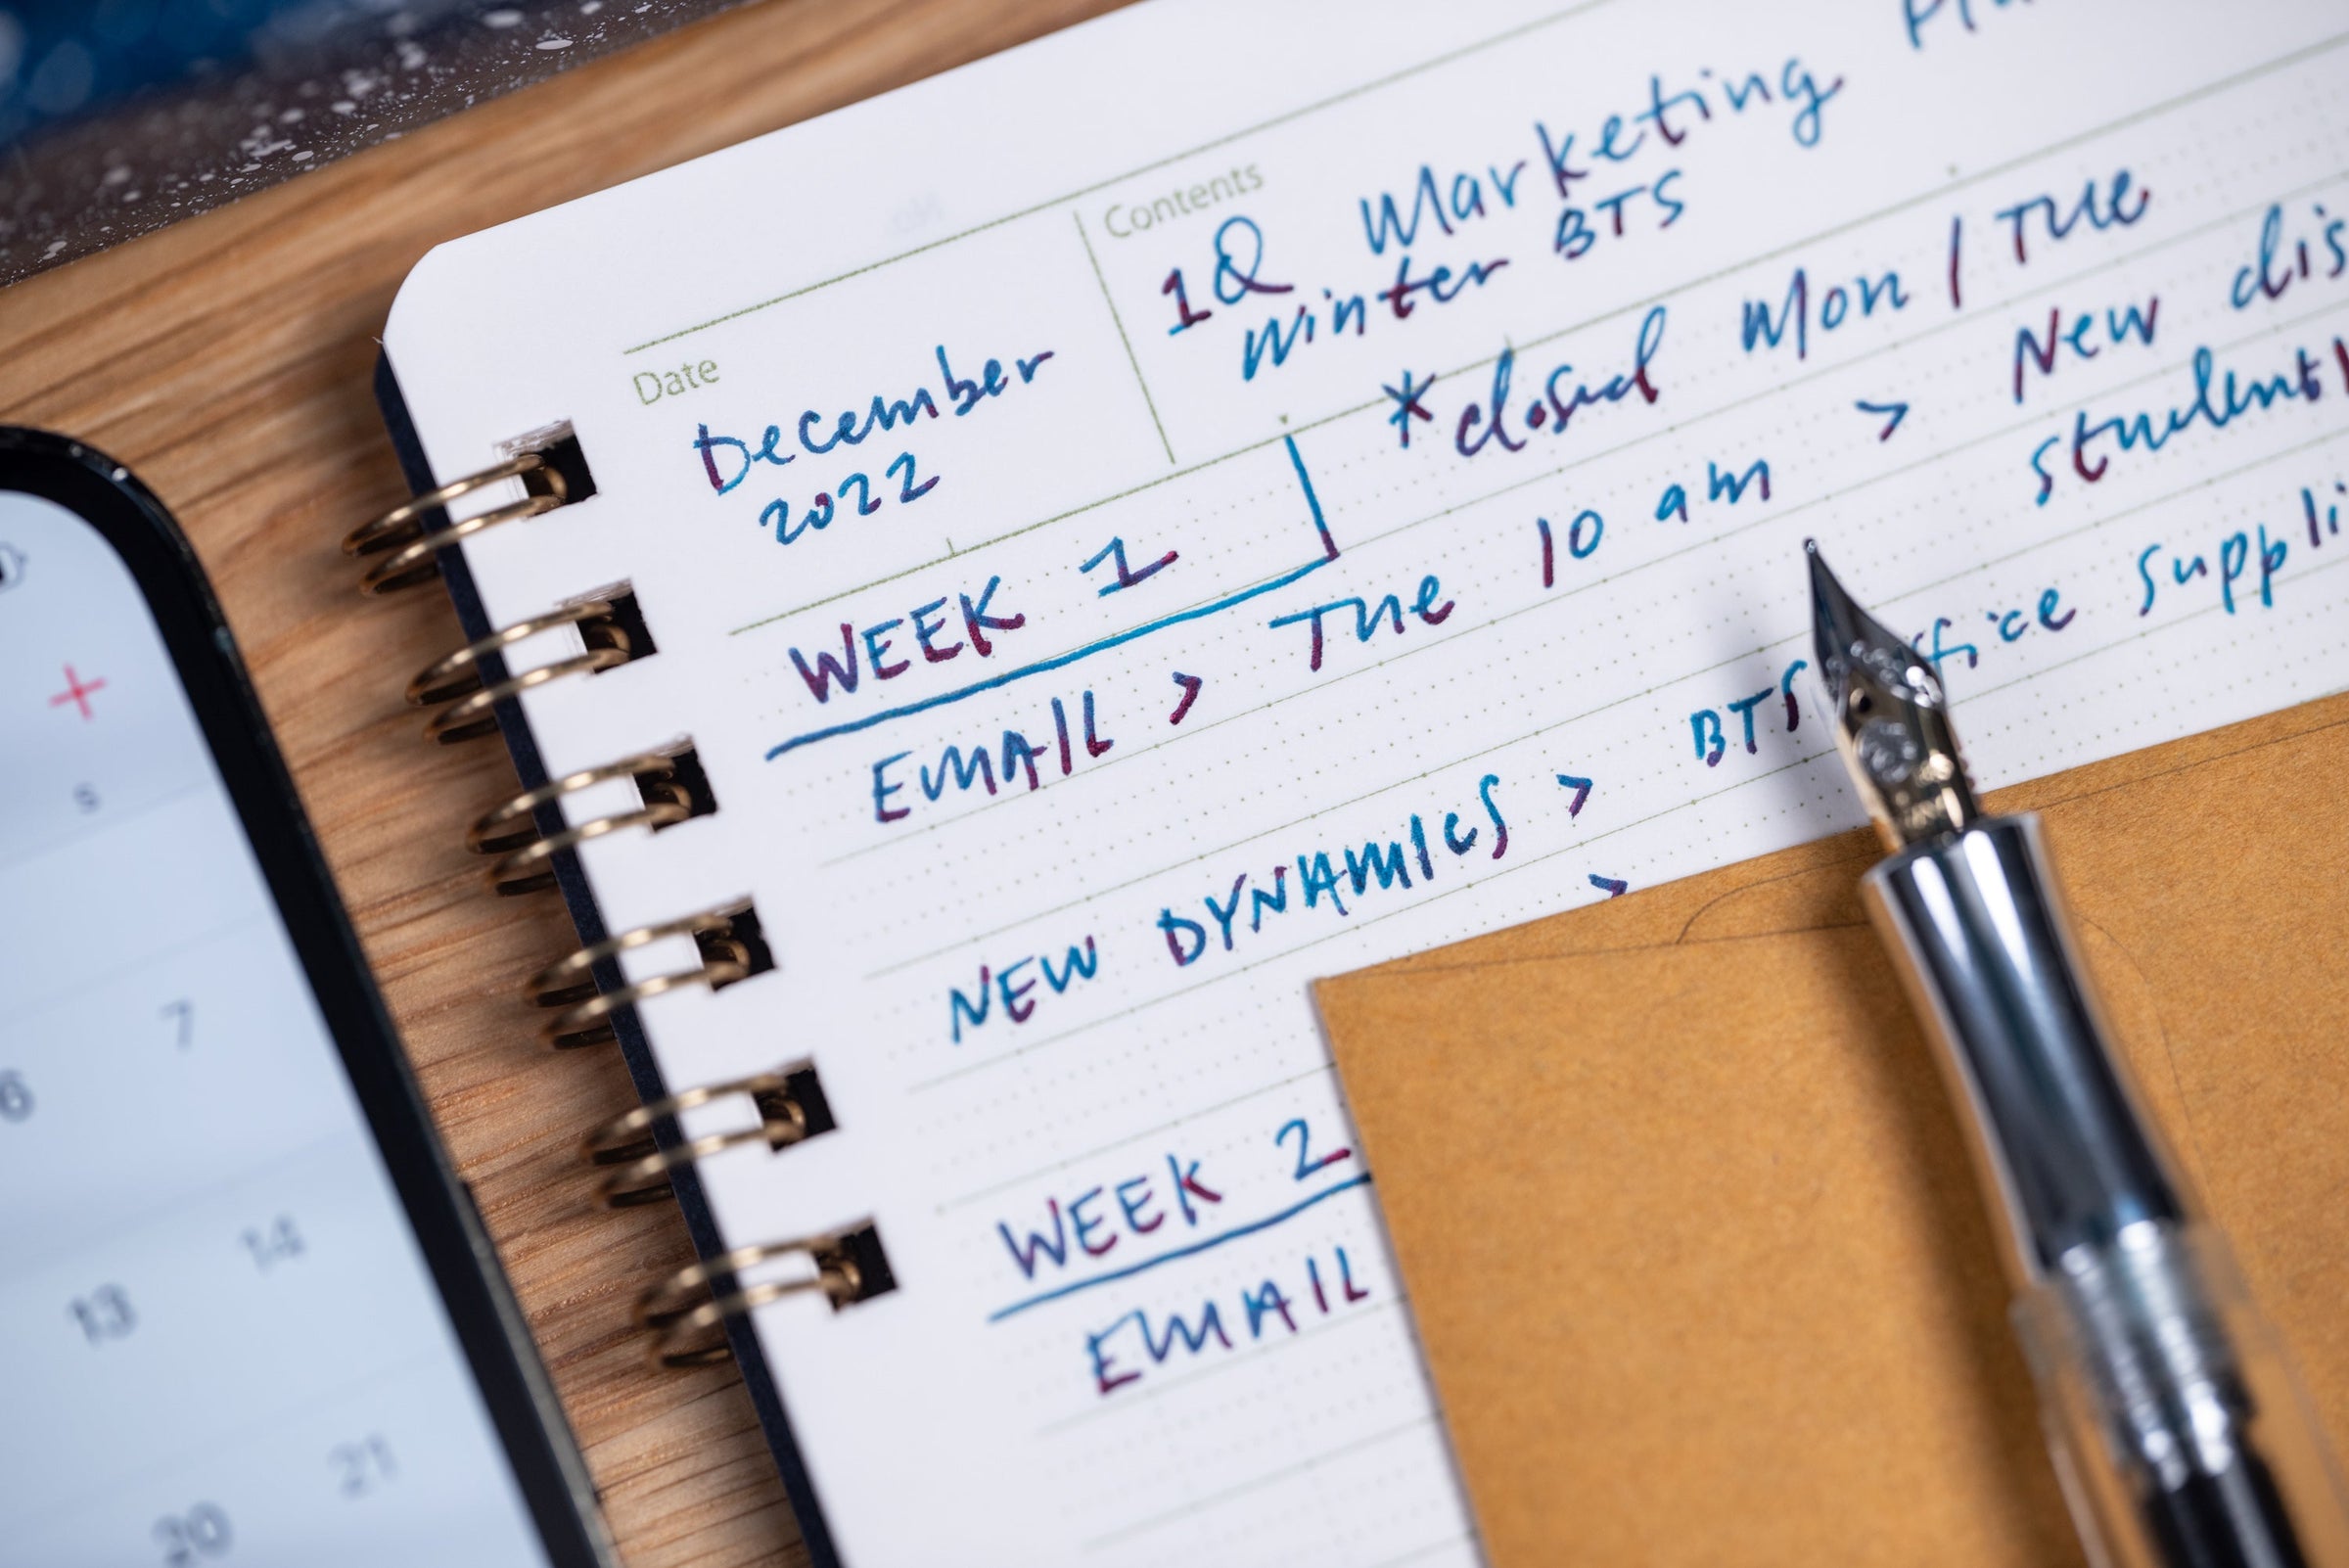 Date
December
2022
Contents
1Q Marketing
Winter BTS
*closed Mon / Tue
WEEK 1
EMAIL > Tue 10 am > New
student
NEW DYNAMICS > BTS
>
WEEK 2
EMAIL
+
S
7
6
14
13
21
20